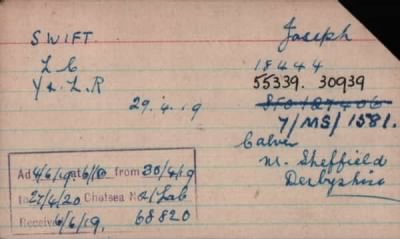 SWIFT. Joseph
L C 18444
Y & L. R 55339. 30939
29.4.19
7/MS/1581.
Calver
Nr. Sheffield
Derbyshire
4/6/19 from 30/4/19
to 27/4/20 Chelsea No
Received 6/6/19. 68820